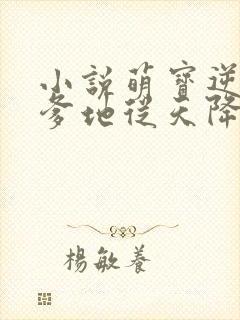 小說萌寶逆
爹地從天降
楊敏養